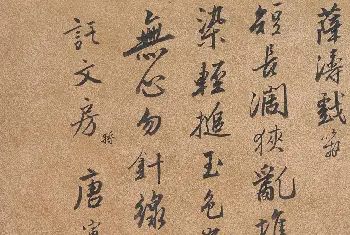 薛涛戲箋
短長闊狹亂堆
染輕搥玉色
無心勿針線
託文房 唐寅